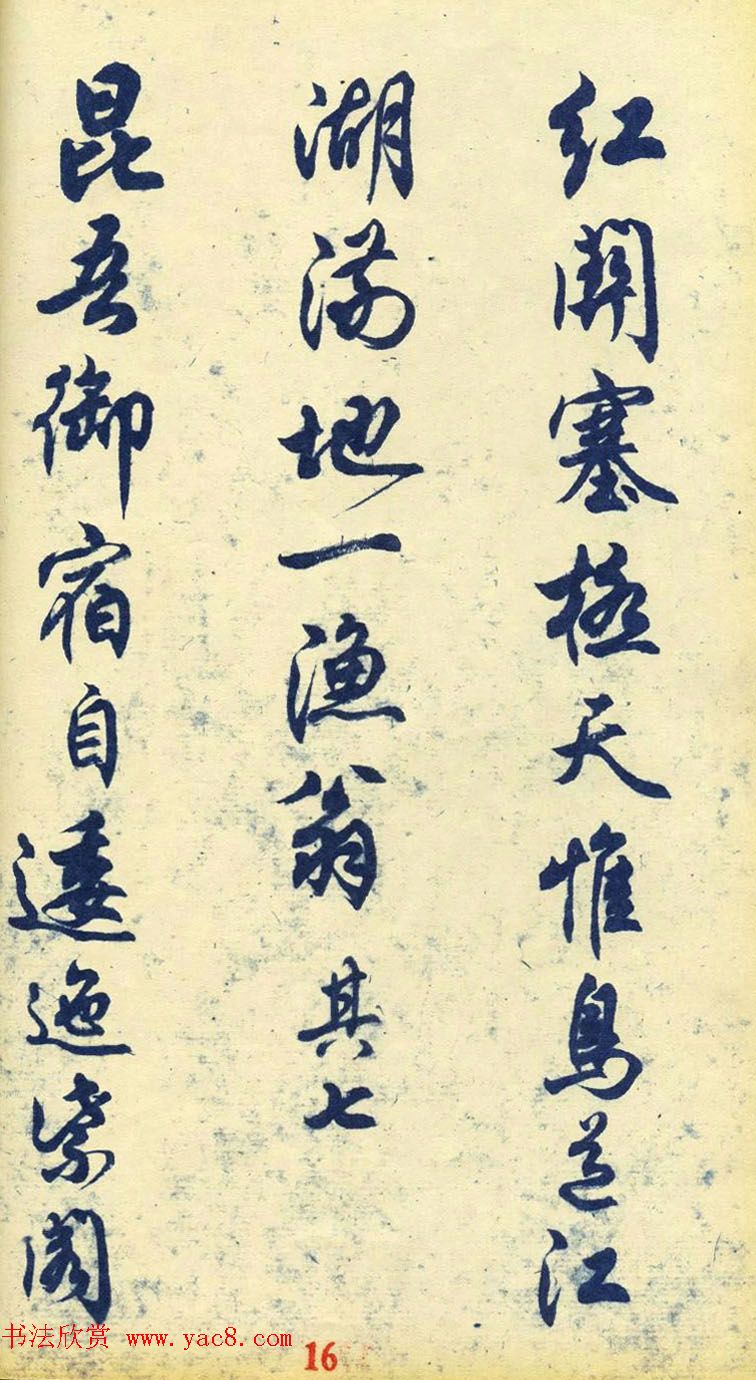 紅關塞極天惟鳥道江
湖滿地一漁翁 其七
昆吾御宿自逶迤紫閣
书法欣赏 www.yac8.com
16